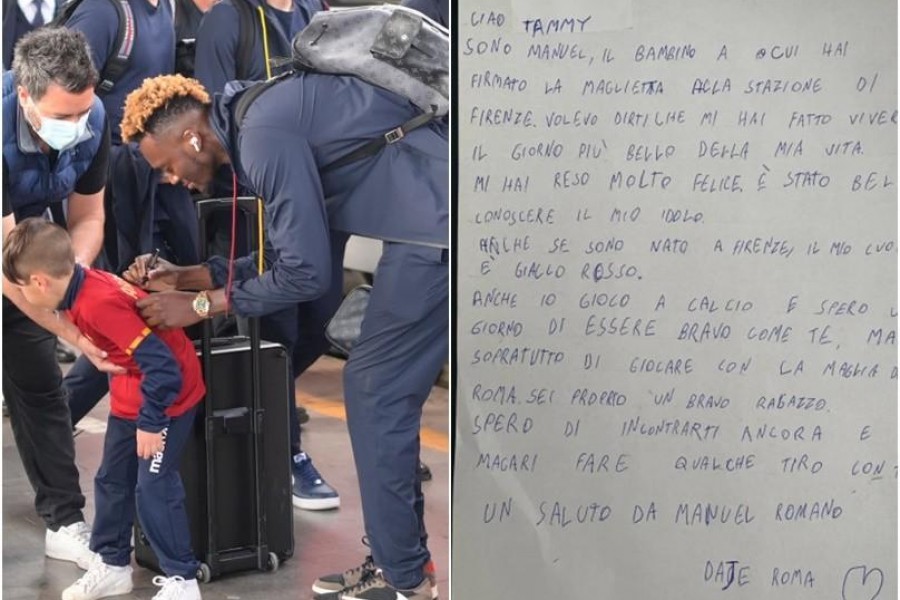 CIAO TAMMY
SONO MANUEL, IL BAMBINO A CUI HAI
FIRMATO LA MAGLIETTA ALLA STAZIONE DI
FIRENZE. VOLEVO DIRTI CHE MI HAI FATTO VIVER
IL GIORNO PIÙ BELLO DELLA MIA VITA.
MI HAI RESO MOLTO FELICE. È STATO BEL
CONOSCERE IL MIO IDOLO.
ANCHE SE SONO NATO A FIRENZE, IL MIO CUO
È GIALLO ROSSO.
ANCHE IO GIOCO A CALCIO E SPERO U
GIORNO DI ESSERE BRAVO COME TE, MA
SOPRATUTTO DI GIOCARE CON LA MAGLIA D
ROMA. SEI PROPRIO UN BRAVO RAGAZZO.
SPERO DI INCONTRARTI ANCORA E
MAGARI FARE QUALCHE TIRO CON T
UN SALUTO DA MANUEL ROMANO
DAJE ROMA